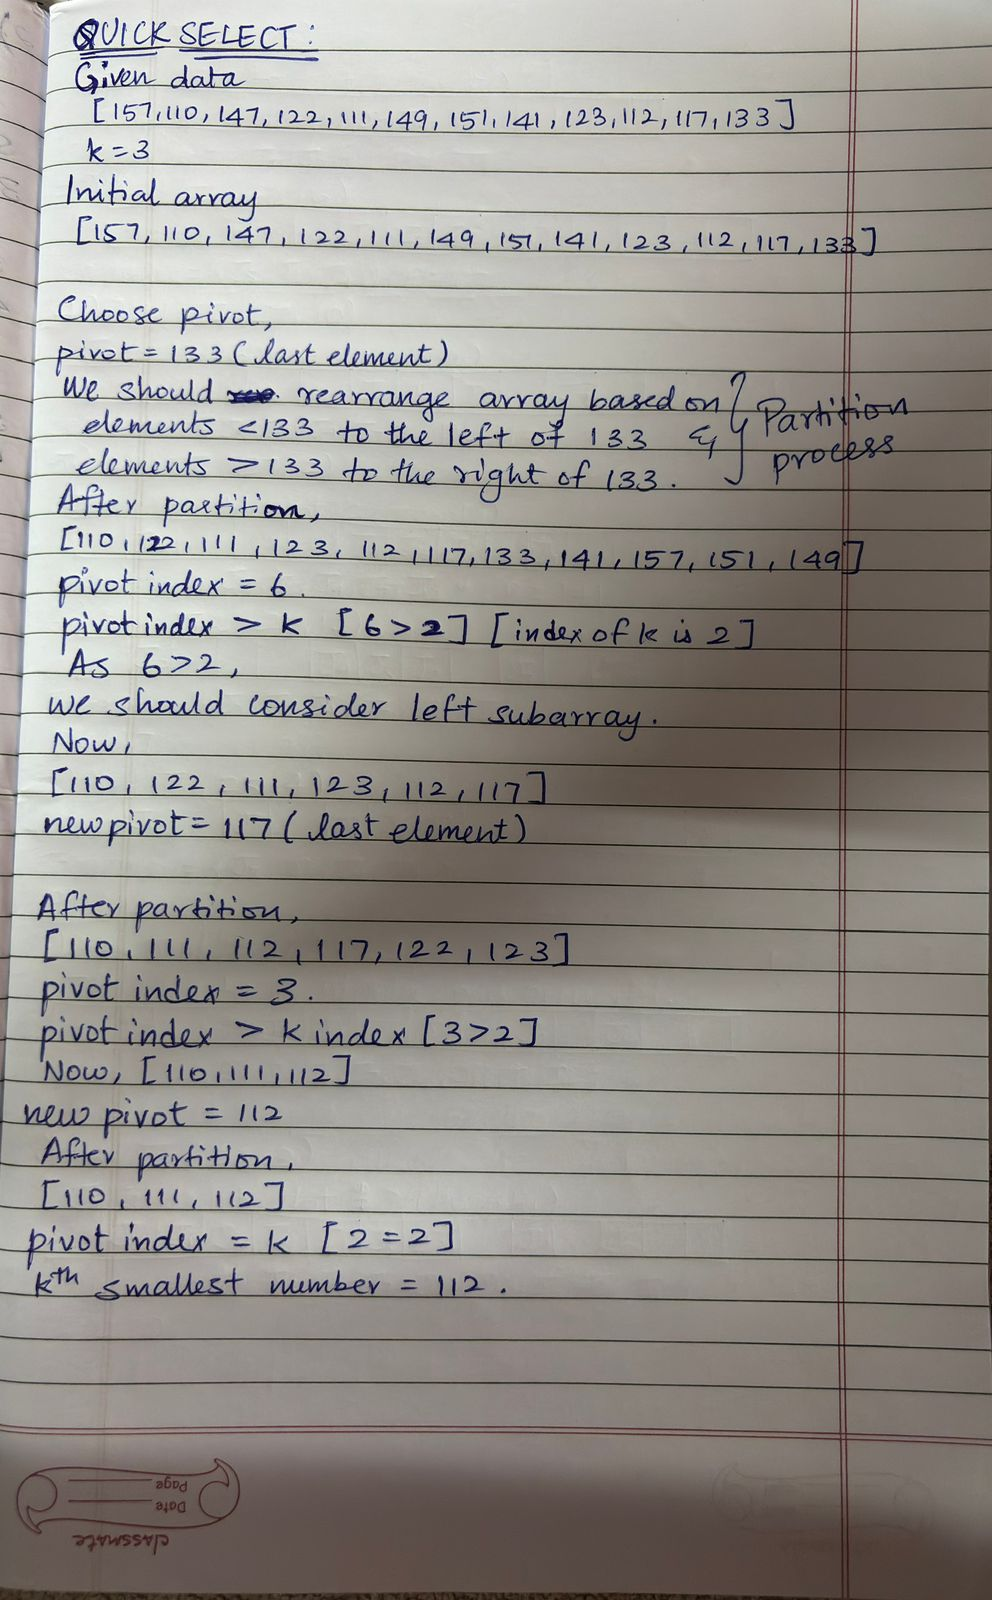 QUICK SELECT:
Given data
[157,110,147,122,111,149,151,141,123,112,117,133]
k=3
Initial array
[157,110,147,122,111,149,151,141,123,112,117,133]
Choose pivot,
pivot = 133 (last element)
We should rearrange array based on
elements <133 to the left of 133 &
elements >133 to the right of 133.
Partition
process
After partition,
[110,122,111,123,112,117,133,141,157,151,149]
pivot index = 6.
pivot index > k [6>2] [index of k is 2]
As 6>2,
we should consider left subarray.
Now,
[110,122,111,123,112,117]
new pivot = 117 (last element)
After partition,
[110,111,112,117,122,123]
pivot index = 3.
pivot index > k index [3>2]
Now, [110,111,112]
new pivot = 112
After partition,
[110,111,112]
pivot index = k [2=2]
kth smallest number = 112.
Page
Date
classmate